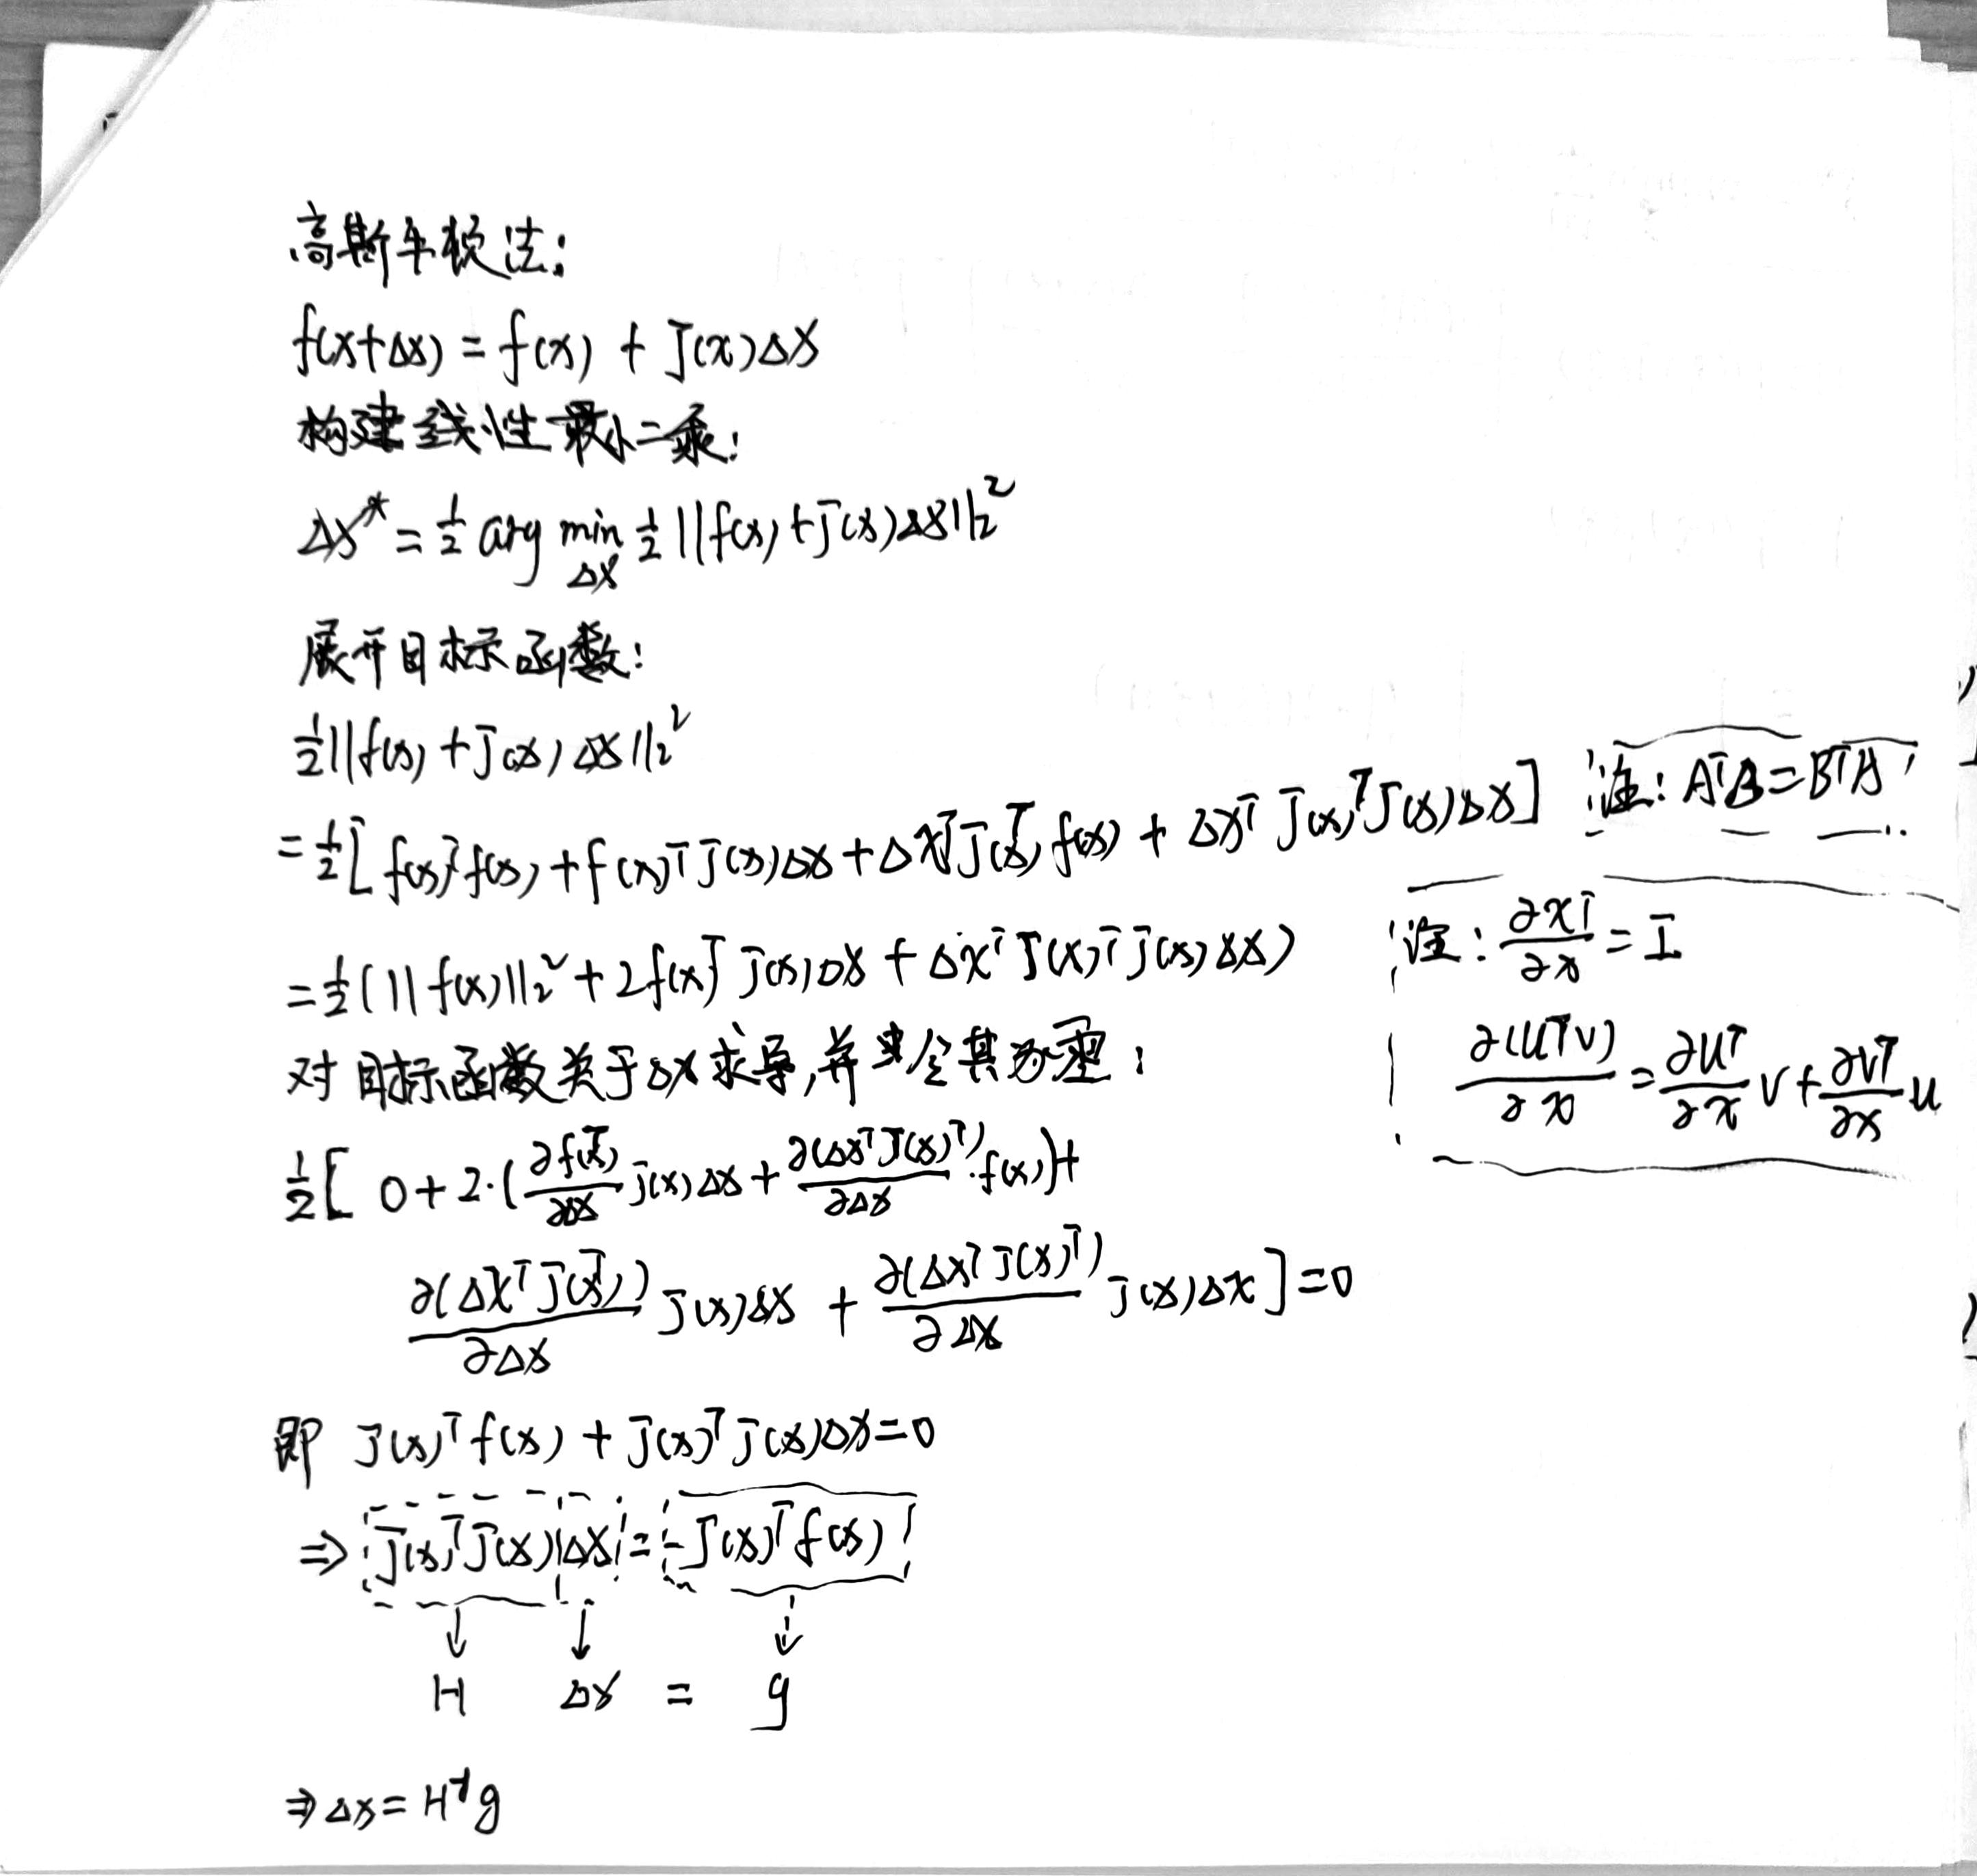 高斯牛顿法:
f(x+Δx) = f(x) + J(x)Δx
构建线性最小二乘:
Δx* = 1/2 arg min_{Δx} 1/2 ||f(x)+J(x)Δx||₂²
展开目标函数:
1/2||f(x)+J(x)Δx||₂²
=1/2[f(x)ᵀf(x)+f(x)ᵀJ(x)Δx+ΔxᵀJ(x)ᵀf(x)+ΔxᵀJ(x)ᵀJ(x)Δx]
注: AᵀB=BᵀA
=1/2(||f(x)||₂²+2f(x)ᵀJ(x)Δx+ΔxᵀJ(x)ᵀJ(x)Δx)
注: ∂xᵀ/∂x = I
∂(uᵀv)/∂x = ∂uᵀ/∂x v + ∂vᵀ/∂x u
对目标函数关于Δx求导,并令其为零:
1/2[0+2·(∂f(x)ᵀ/∂Δx J(x)Δx + ∂(ΔxᵀJ(x)ᵀ)/∂Δx ·f(x))+
∂(ΔxᵀJ(x)ᵀ)/∂Δx J(x)Δx + ∂(ΔxᵀJ(x)ᵀ)/∂Δx J(x)Δx]=0
即 J(x)ᵀf(x)+J(x)ᵀJ(x)Δx=0
⇒ J(x)ᵀJ(x) Δx = -J(x)ᵀf(x)
↓ ↓ ↓
H Δx = g
⇒Δx=H⁻¹g